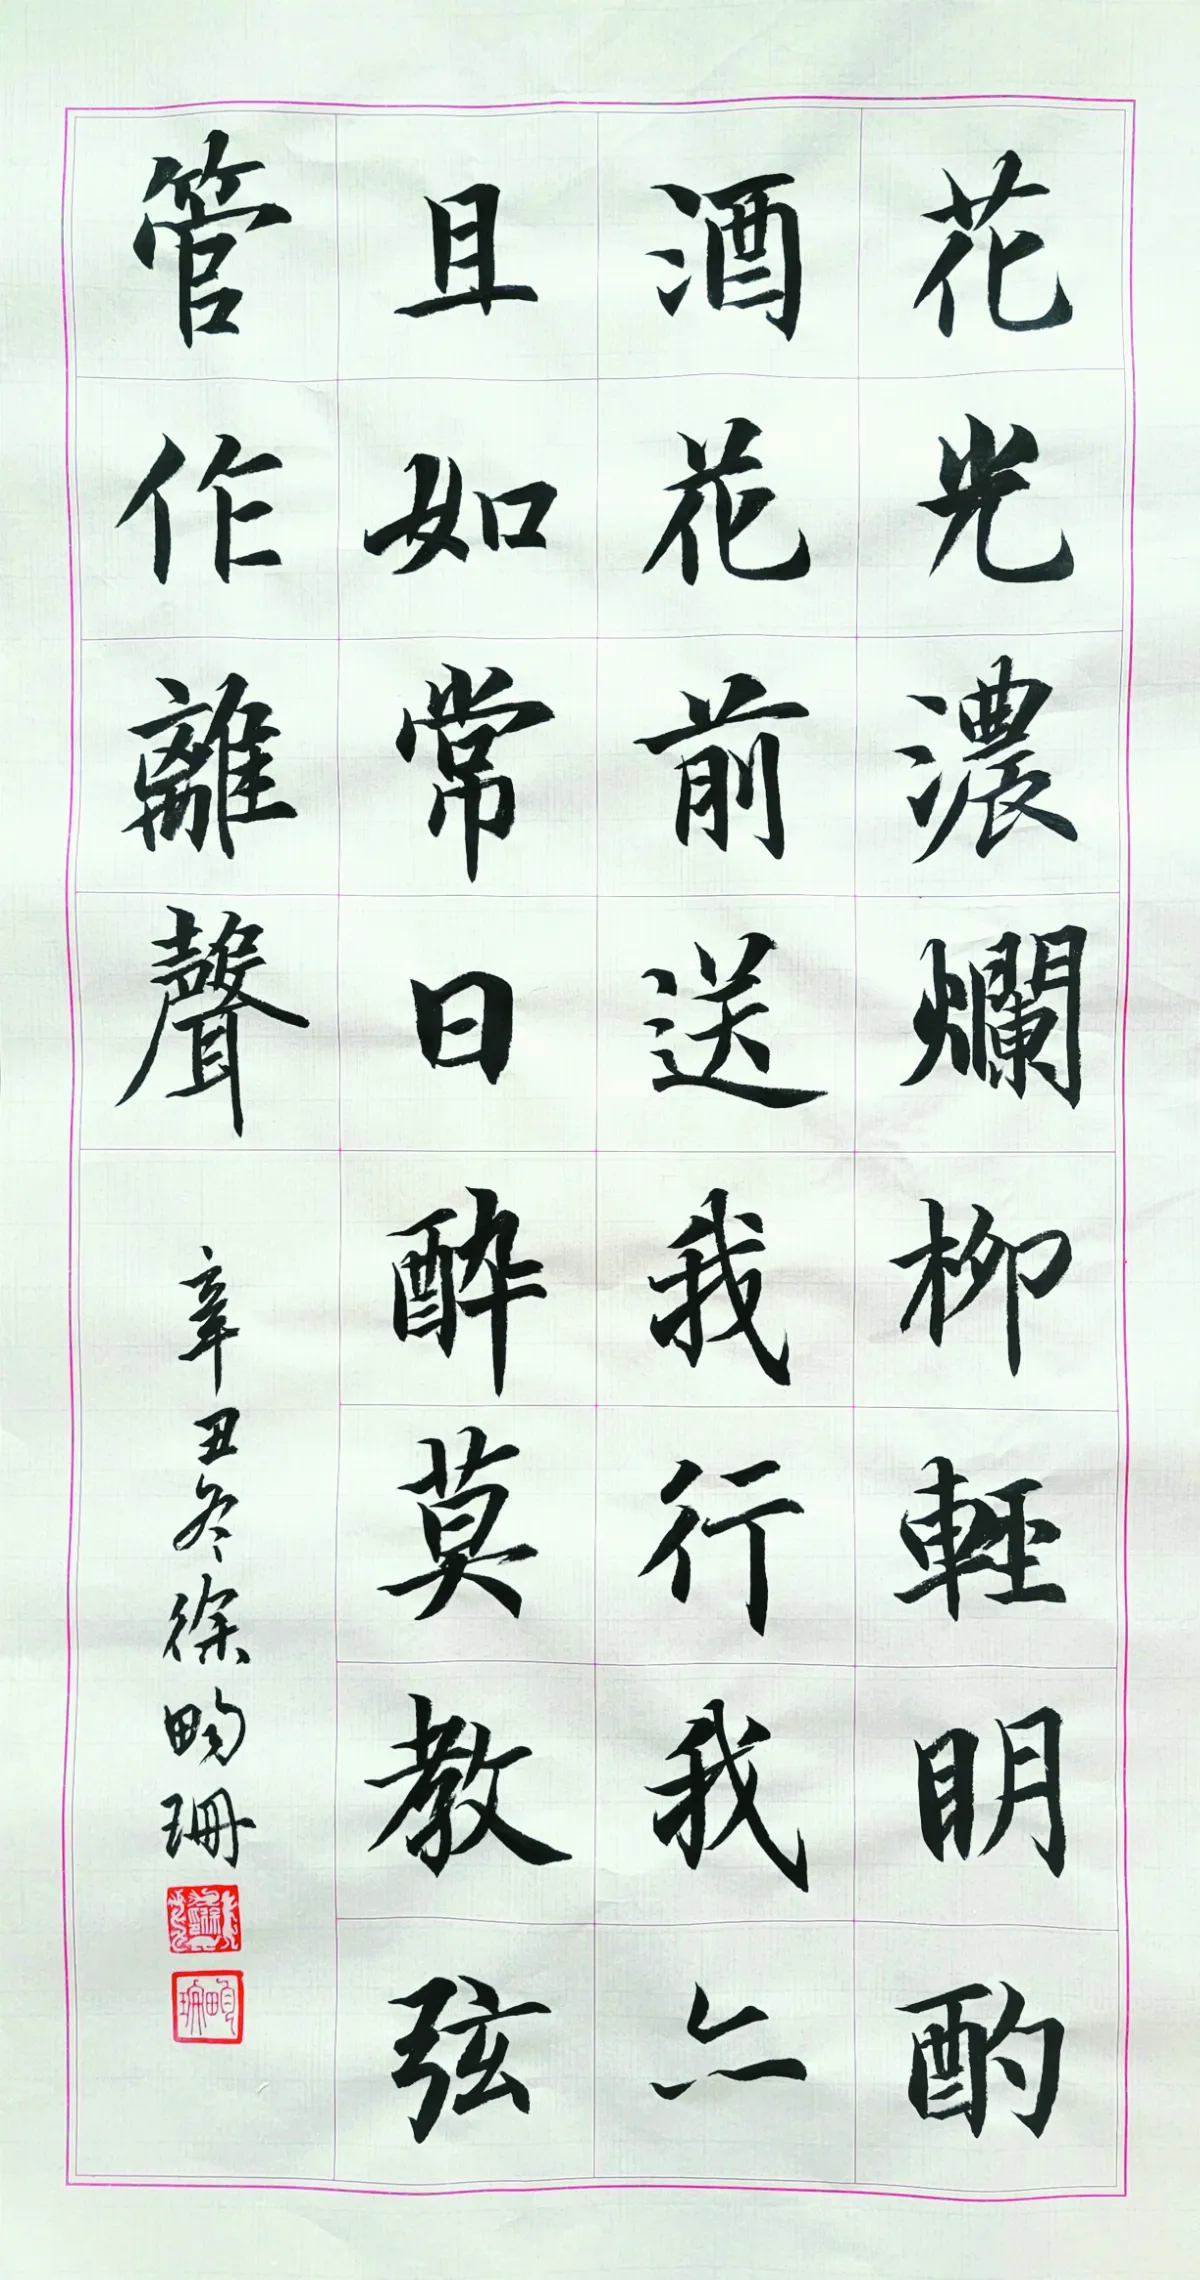 花光濃爛柳輕明酌
酒花前送我行我亦
且如常日醉莫教弦
管作離聲
辛丑冬徐畅珊